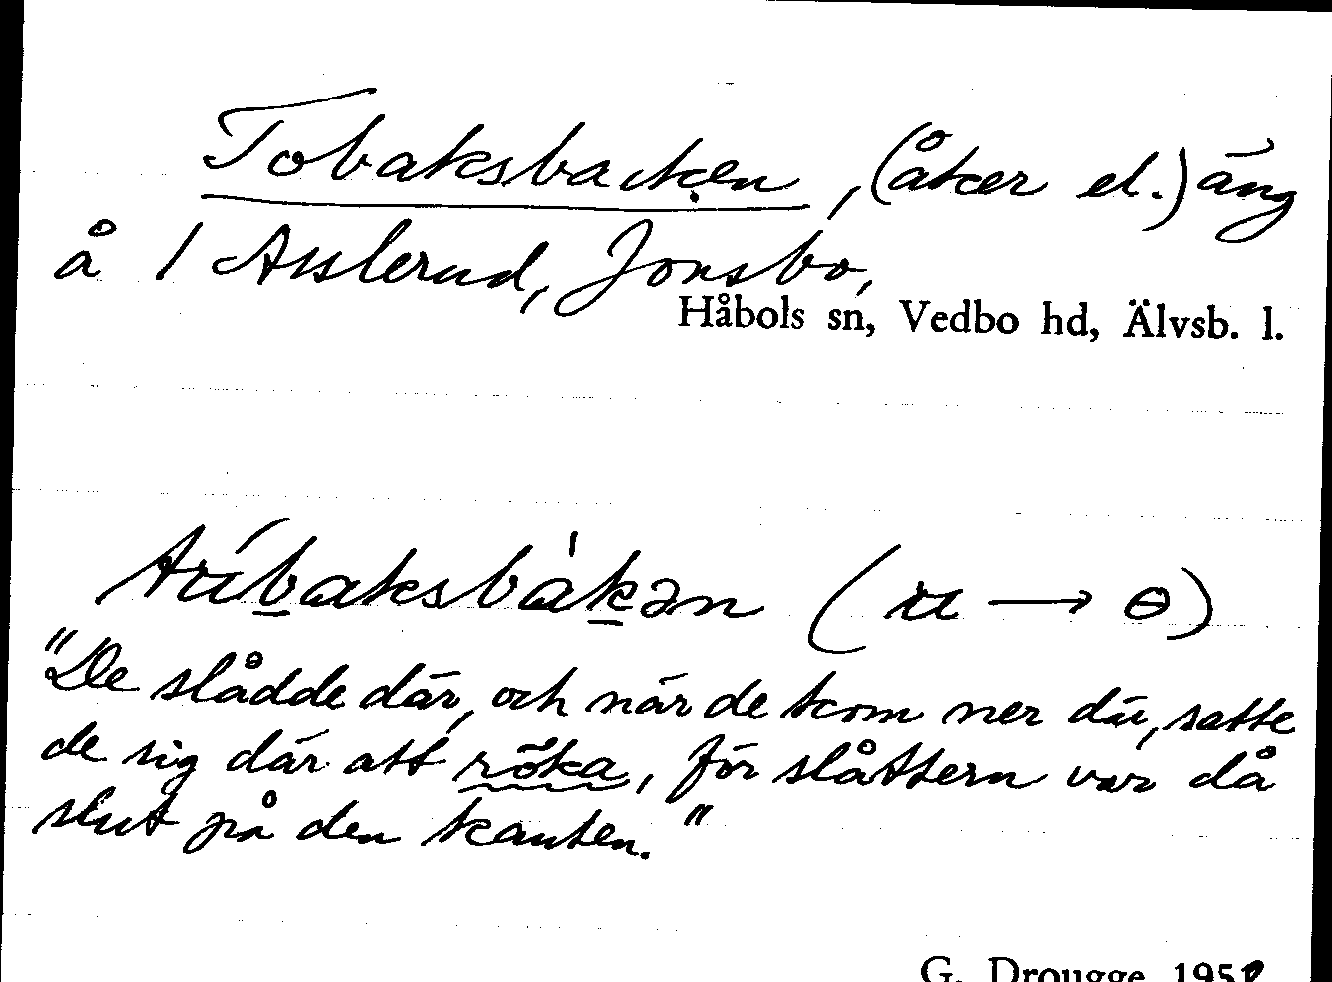 Tobaksbacken, (åker el.) äng
å 1 Asslerud, Jonsbo,
Håbols sn, Vedbo hd, Älvsb. l.
"De slådde där, och när de kom ner där, satte
de sig där att röka, för slåttern var då
slut på den kanten."
G. Drougge